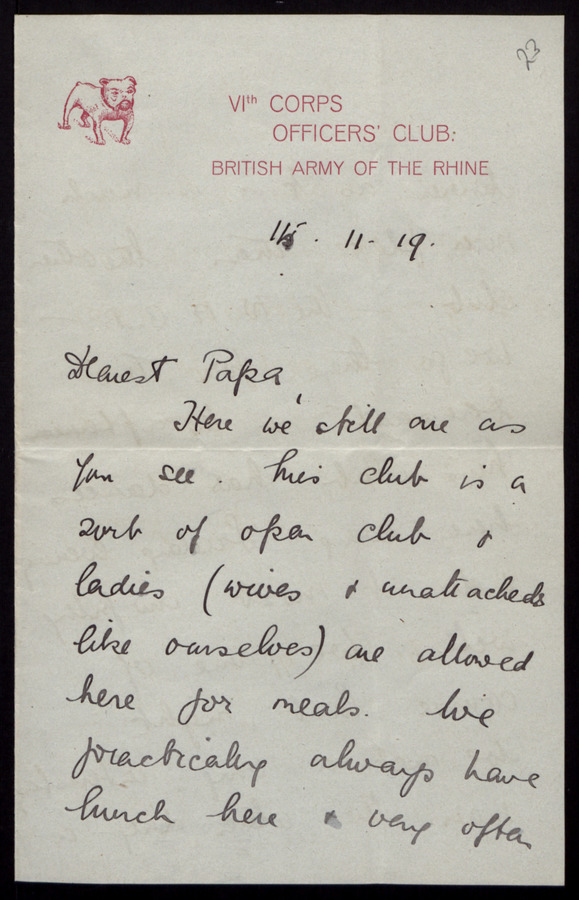 23
VIth CORPS
OFFICERS' CLUB:
BRITISH ARMY OF THE RHINE
15. 11. 19.
Dearest Papa,
Here we still are as
you see. This club is a
sort of open club &
ladies (wives & unattacheds
like ourselves) are allowed
here for meals. We
practically always have
lunch here & very often